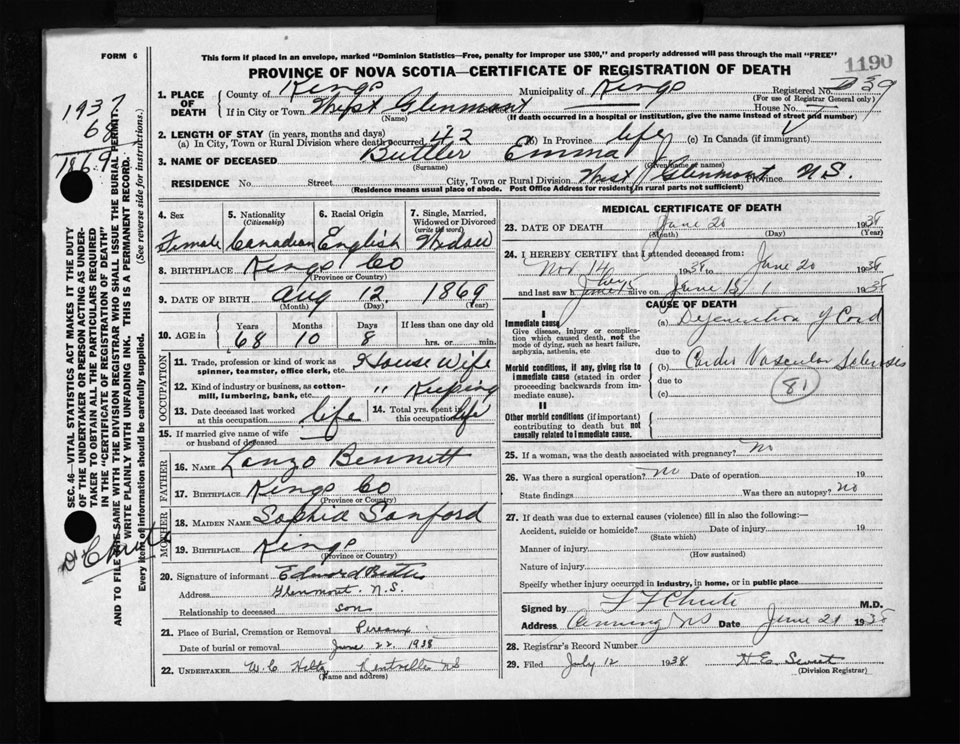 FORM 6
This form if placed in an envelope, marked "Dominion Statistics—Free, penalty for improper use $300," and properly addressed will pass through the mail "FREE"
1190
PROVINCE OF NOVA SCOTIA—CERTIFICATE OF REGISTRATION OF DEATH
1937
68
1869
Dr Chute
SEC. 46—VITAL STATISTICS ACT MAKES IT THE DUTY
OF THE UNDERTAKER OR PERSON ACTING AS UNDER-
TAKER TO OBTAIN ALL THE PARTICULARS REQUIRED
IN THE "CERTIFICATE OF REGISTRATION OF DEATH"
AND TO FILE THE SAME WITH THE DIVISION REGISTRAR WHO SHALL ISSUE THE BURIAL PERMIT.
WRITE PLAINLY WITH UNFADING INK. THIS IS A PERMANENT RECORD.
Every item of information should be carefully supplied. (See reverse side for instructions.)
1. PLACE OF DEATH County of Kings Municipality of Kings Registered No.
(For use of Registrar General only)
If in City or Town West Glenmont House No.
(Name) (If death occurred in a hospital or institution, give the name instead of street and number)
2. LENGTH OF STAY (in years, months and days)
(a) In City, Town or Rural Division where death occurred 42 (b) In Province life (c) In Canada (if immigrant)
3. NAME OF DECEASED Buttler Emma
(Surname) (Given name or names)
RESIDENCE No. Street City, Town or Rural Division West Glenmont Province N.S.
(Residence means usual place of abode. Post Office Address for residents in rural parts not sufficient)
4. Sex 5. Nationality (Citizenship) 6. Racial Origin 7. Single, Married, Widowed or Divorced (write the word)
Female Canadian English Widow
8. BIRTHPLACE Kings Co
(Province or Country)
9. DATE OF BIRTH Aug 12 1869
(Month) (Day) (Year)
10. AGE in Years Months Days If less than one day old
68 10 8 hrs. or min.
OCCUPATION
11. Trade, profession or kind of work as spinner, teamster, office clerk, etc. House Wife
12. Kind of industry or business, as cotton-mill, lumbering, bank, etc. " Keeping
13. Date deceased last worked at this occupation life 14. Total yrs. spent in this occupation life
15. If married give name of wife or husband of deceased
FATHER
16. NAME Lonzo Bennett
17. BIRTHPLACE Kings Co
(Province or Country)
MOTHER
18. MAIDEN NAME Sophia Sanford
19. BIRTHPLACE Kings
(Province or Country)
20. Signature of informant Edward Butler
Address Glenmont. N.S.
Relationship to deceased son
21. Place of Burial, Cremation or Removal Pereaux
Date of burial or removal June 22 1938
22. UNDERTAKER W. C. Hiltz Kentville NS
(Name and address)
MEDICAL CERTIFICATE OF DEATH
23. DATE OF DEATH June 20 1938
(Month) (Day) (Year)
24. I HEREBY CERTIFY that I attended deceased from:
Nov 14 1938 to June 20 1938
and last saw her alive on June 15 1938
CAUSE OF DEATH
I
Immediate cause
Give disease, injury or complication which caused death, not the mode of dying, such as heart failure, asphyxia, asthenia, etc
(a) of Cord
due to
Morbid conditions, if any, giving rise to immediate cause (stated in order proceeding backwards from immediate cause).
(b) Cardio Vascular Sclerosis
due to
(c) 81
II
Other morbid conditions (if important) contributing to death but not causally related to immediate cause.
25. If a woman, was the death associated with pregnancy? No
26. Was there a surgical operation? No Date of operation 19
State findings Was there an autopsy? No
27. If death was due to external causes (violence) fill in also the following:—
Accident, suicide or homicide? Date of injury 19
(State which)
Manner of injury
(How sustained)
Nature of injury
Specify whether injury occurred in industry, in home, or in public place
Signed by F F Chute M.D.
Address Canning NS Date June 21 1938
28. Registrar's Record Number
29. Filed July 12 1938 H E Sweet
(Division Registrar)